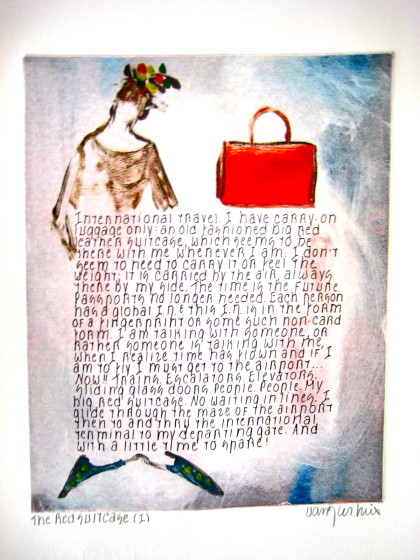 International travel. I have carry-on
luggage only: an old fashioned big red
leather suitcase, which seems to be
there with me wherever I am. I don't
seem to need to carry it or feel the
weight; it is carried by the air, always
there by my side. The time is the future.
Passports no longer needed. Each person
has a global I.D. & this I.D. is in the form
of a fingerprint or some such non-card
form. I am talking with someone, or
rather someone is talking with me,
when I realize time has flown and if I
am to fly I must get to the airport...
Now!! Trains. Escalators. Elevators.
Sliding glass doors. People. People. My
big red suitcase. No waiting in lines. I
glide through the maze of the airport
then to and thru the international
terminal to my departing gate. And
with a little time to spare!
The Red Suitcase (I)